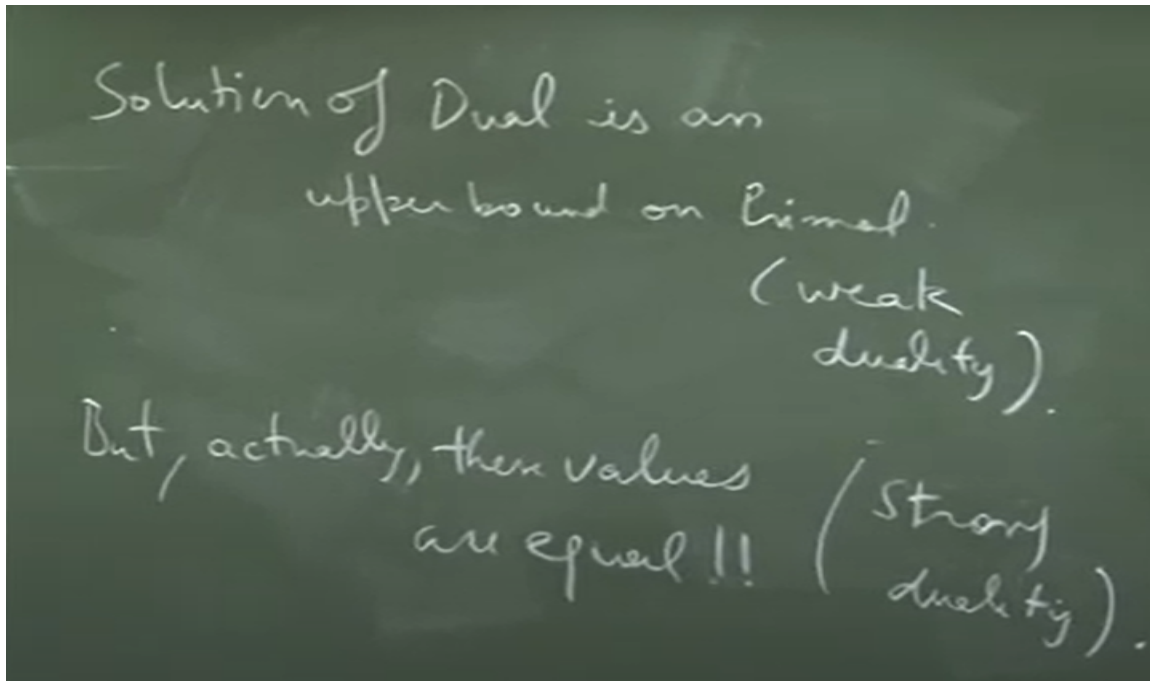 Solution of Dual is an
upper bound on Primal.
(weak
duality).
But, actually, these values
are equal!!
(Strong
duality).